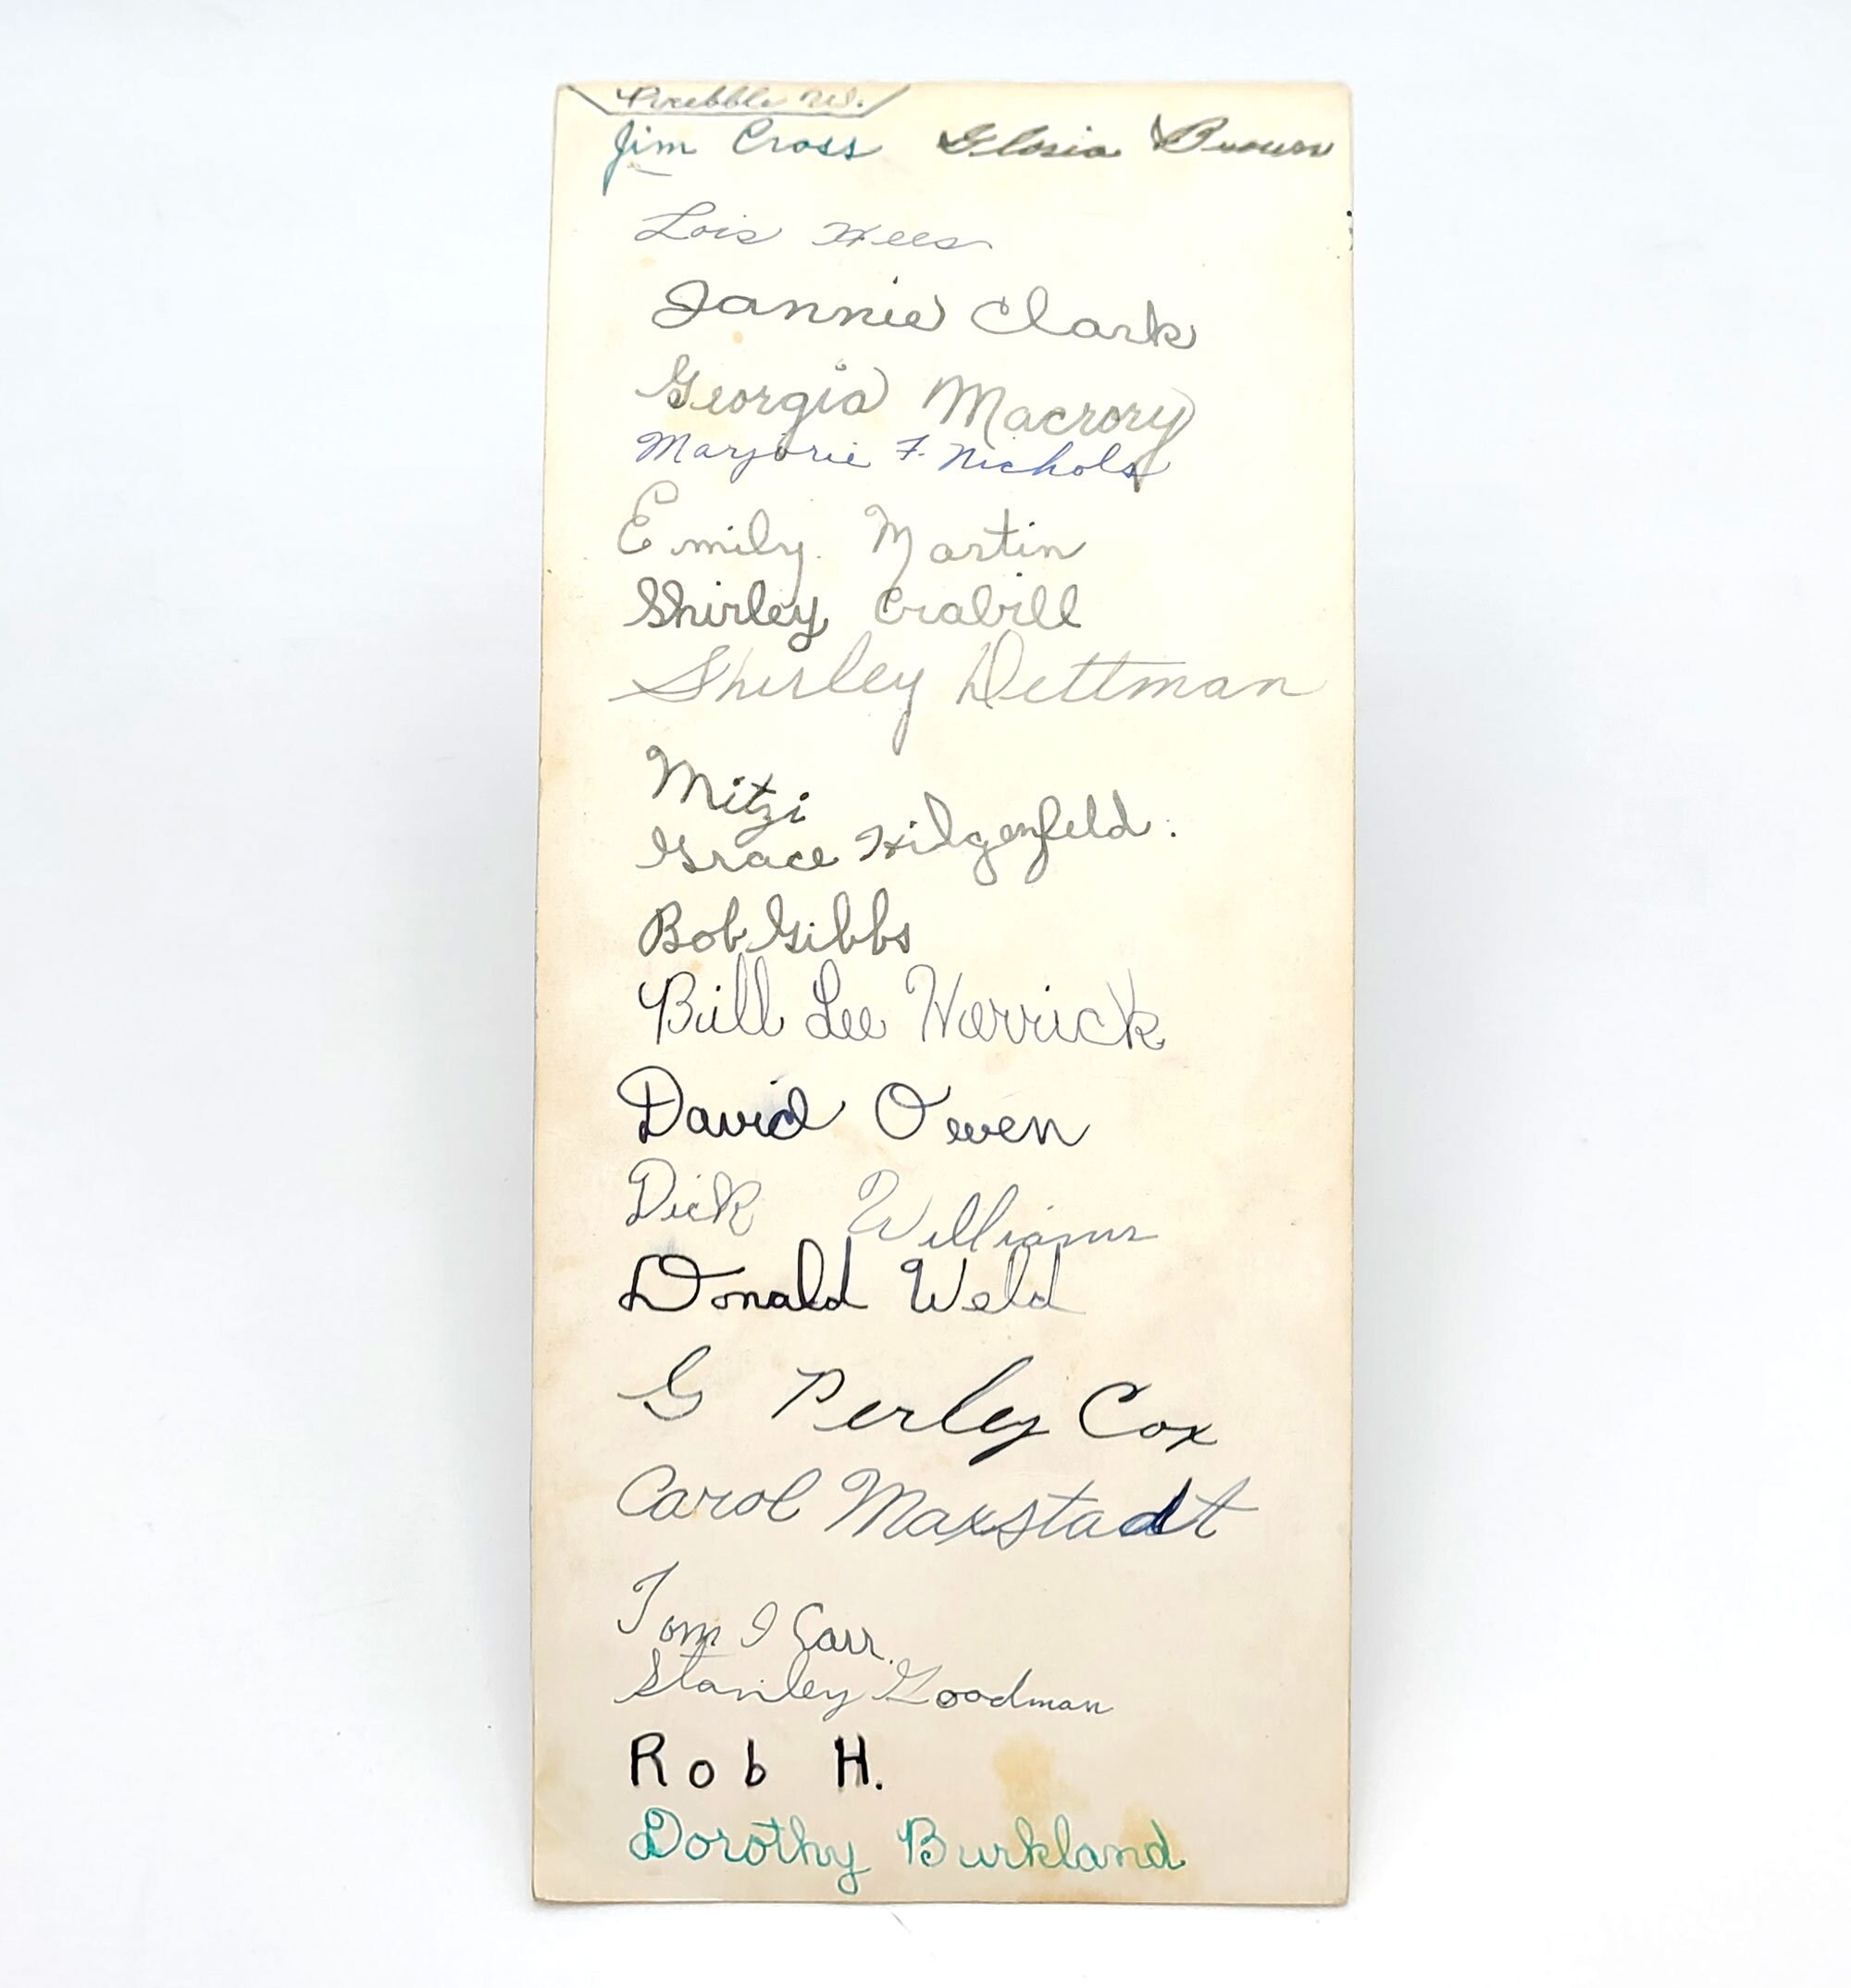 Jim Cross Gloria Brown
Lois Hees
Jannie Clark
Georgia Macrory
Marjorie F. Nichols
Emily Martin
Shirley Crabill
Shirley Dettman
Mitzi
Grace Hilgenfeld.
Bob Gibbs
Bill Lee Warrick
David Owen
Dick Williams
Donald Weld
G Perley Cox
Carol Maxstadt
Tom J Carr.
Stanley Goodman
Rob H.
Dorothy Burkland